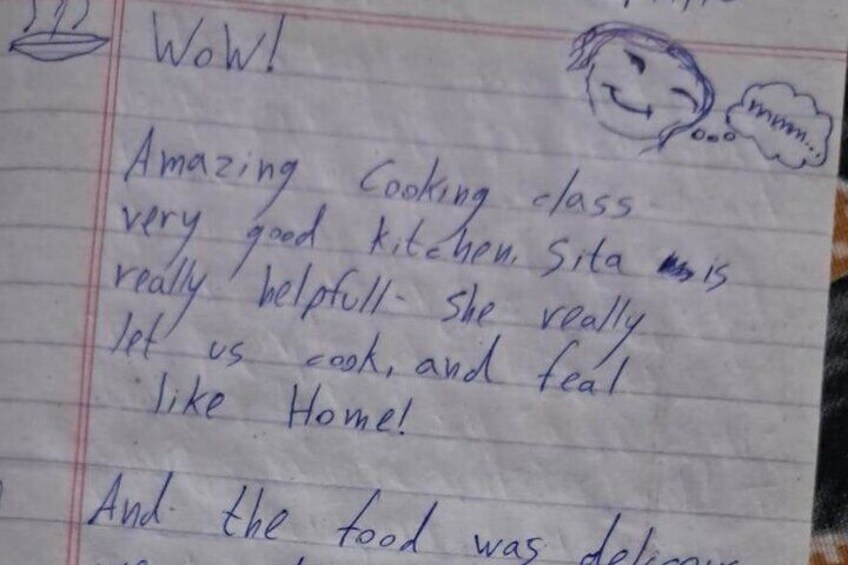 WoW!
mmm...
Amazing Cooking class
very good kitchen. Sita is
really helpfull- She really
let us cook, and feal
like Home!
And the food was